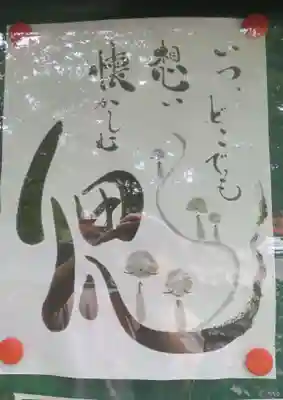 いつ、どこでも
想い
懐かしむ
偲